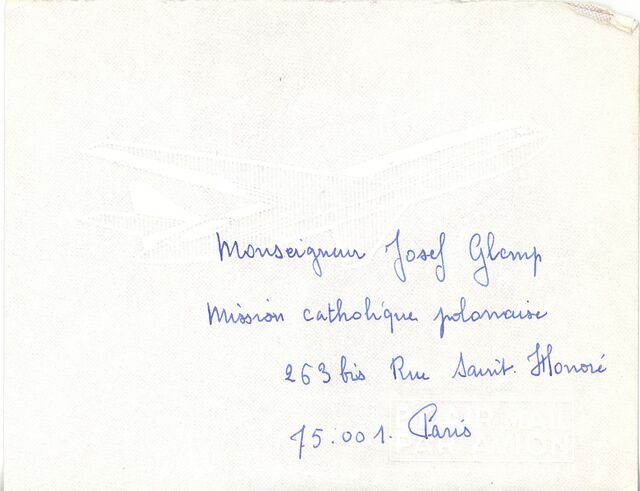 Monseigneur Josef Glemp
Mission catholique polonaise
263 bis Rue Saint. Honoré
75.001. Paris
PAR AVION